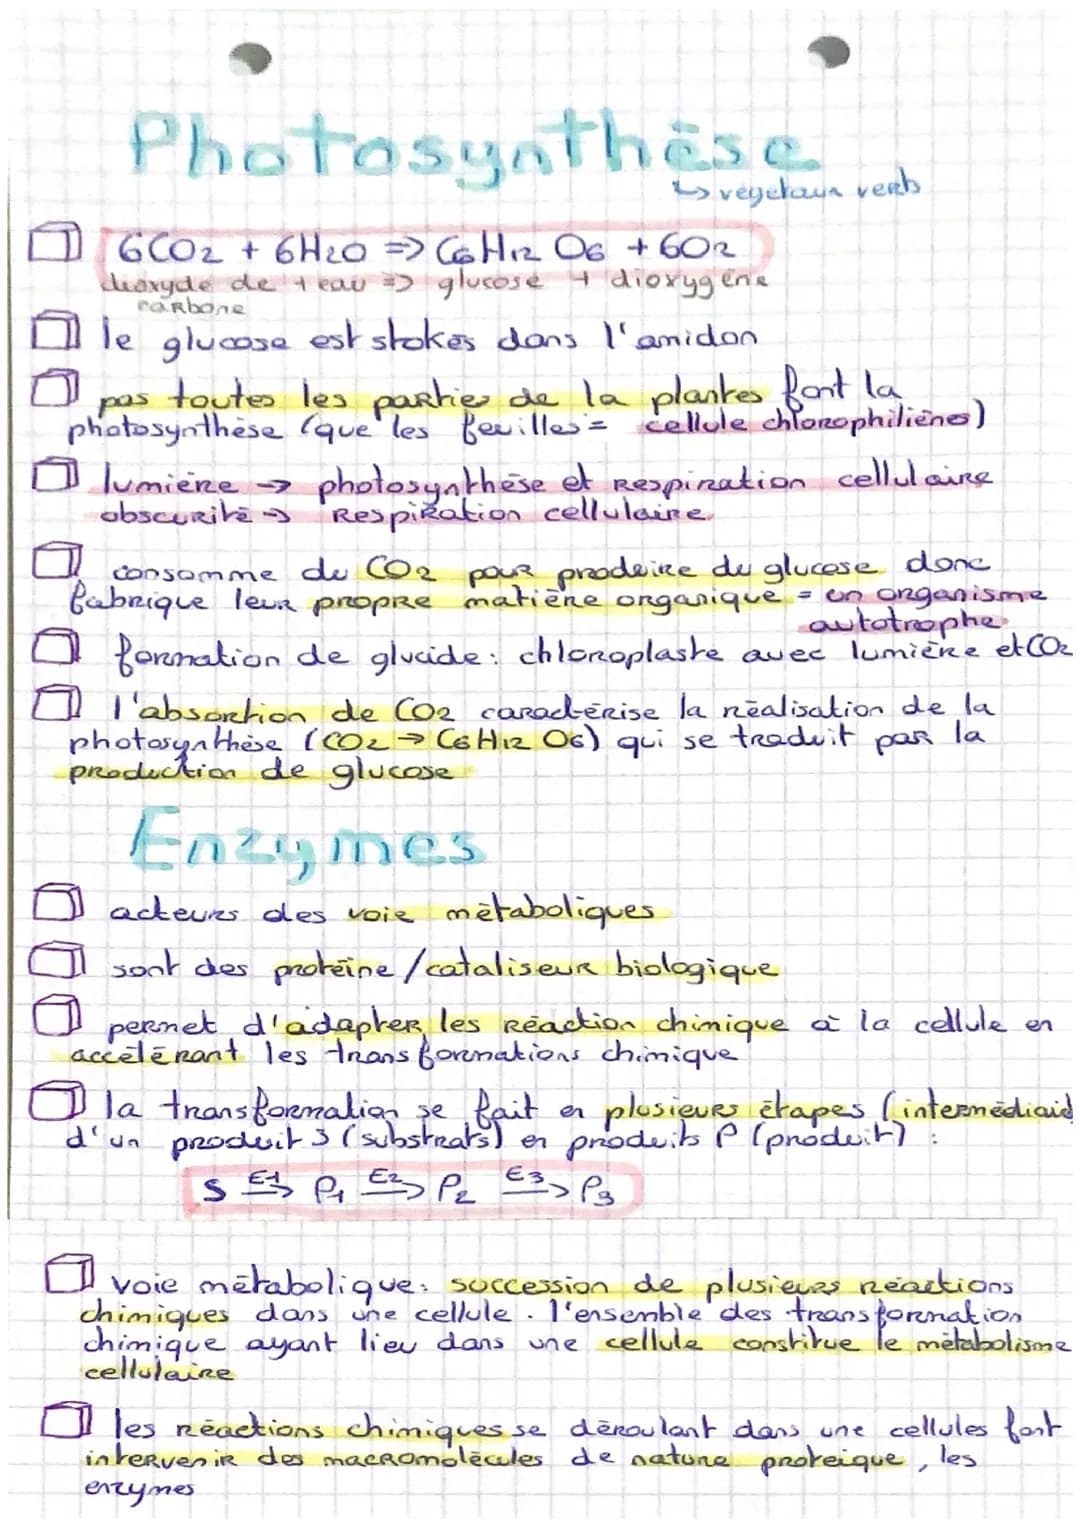 Photosynthèse
↳ végétaux verts
6CO2 + 6H2O => C6H12O6 + 6O2
dioxyde de + eau => glucose + dioxygène
carbone
le glucose est stokés dans l'amidon
pas toutes les parties de la plantes font la
photosynthèse (que les feuilles = cellule chlorophiliènes)
lumière → photosynthèse et respiration cellulaire
obscurité → Respiration cellulaire
consomme du CO2 pour produire du glucose donc
fabrique leur propre matière organique = un organisme
autotrophe
formation de glucide : chloroplaste avec lumière et CO2
l'absortion de CO2 caractérise la réalisation de la
photosynthèse (CO2 → C6H12O6) qui se traduit par la
production de glucose
Enzymes
acteurs des voie métaboliques
sont des protéine/cataliseur biologique
permet d'adapter les réaction chimique à la cellule en
accélérant les transformations chimique
la transformation se fait en plusieurs étapes (intermédiaid
d'un produit S (substrats) en produits P (produit) :
S E1→ P1 E2→ P2 E3→ P3
voie métabolique : succession de plusieurs réactions
chimiques dans une cellule. l'ensemble des transformation
chimique ayant lieu dans une cellule constitue le métabolisme
cellulaire
les réactions chimiques se déroulant dans une cellules font
intervenir des macromolécules de nature protéique, les
enzymes